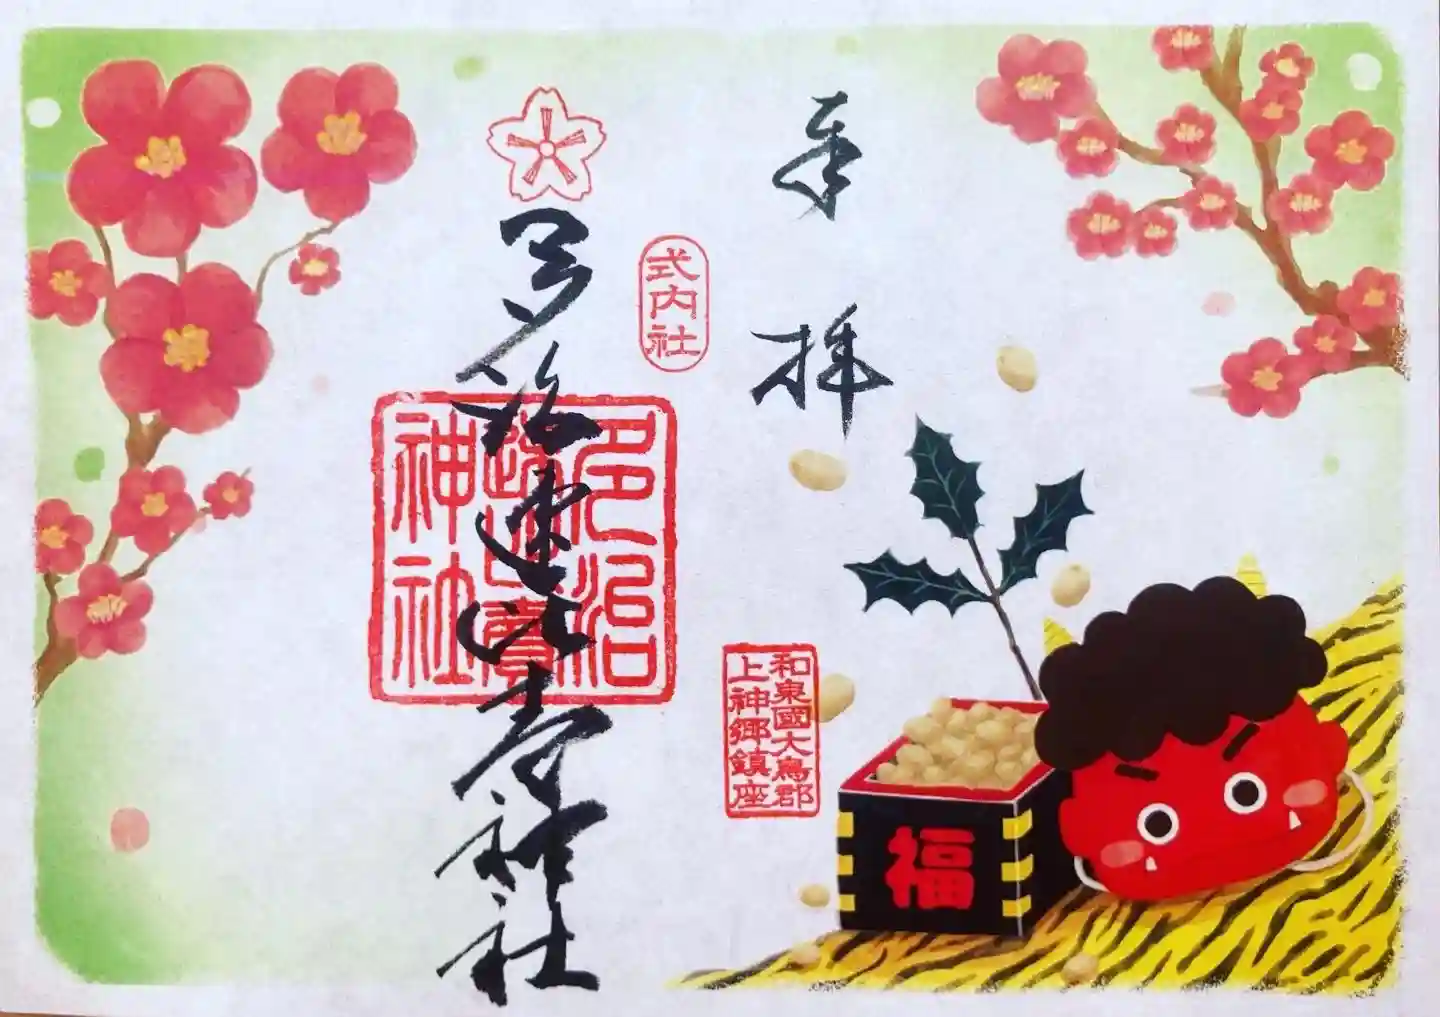 奉拝
式内社
多治速比売神社
多治
速比賣
神社
和泉國大鳥郡
上神郷鎮座
福